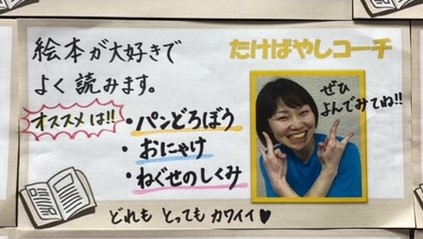 絵本が大好きで
よく読みます。
オススメは!!
・パンどろぼう
・おにゃけ
・ねぐせのしくみ
どれも とっても カワイイ♥
たけばやしコーチ
ぜひ
よんでみてね!!